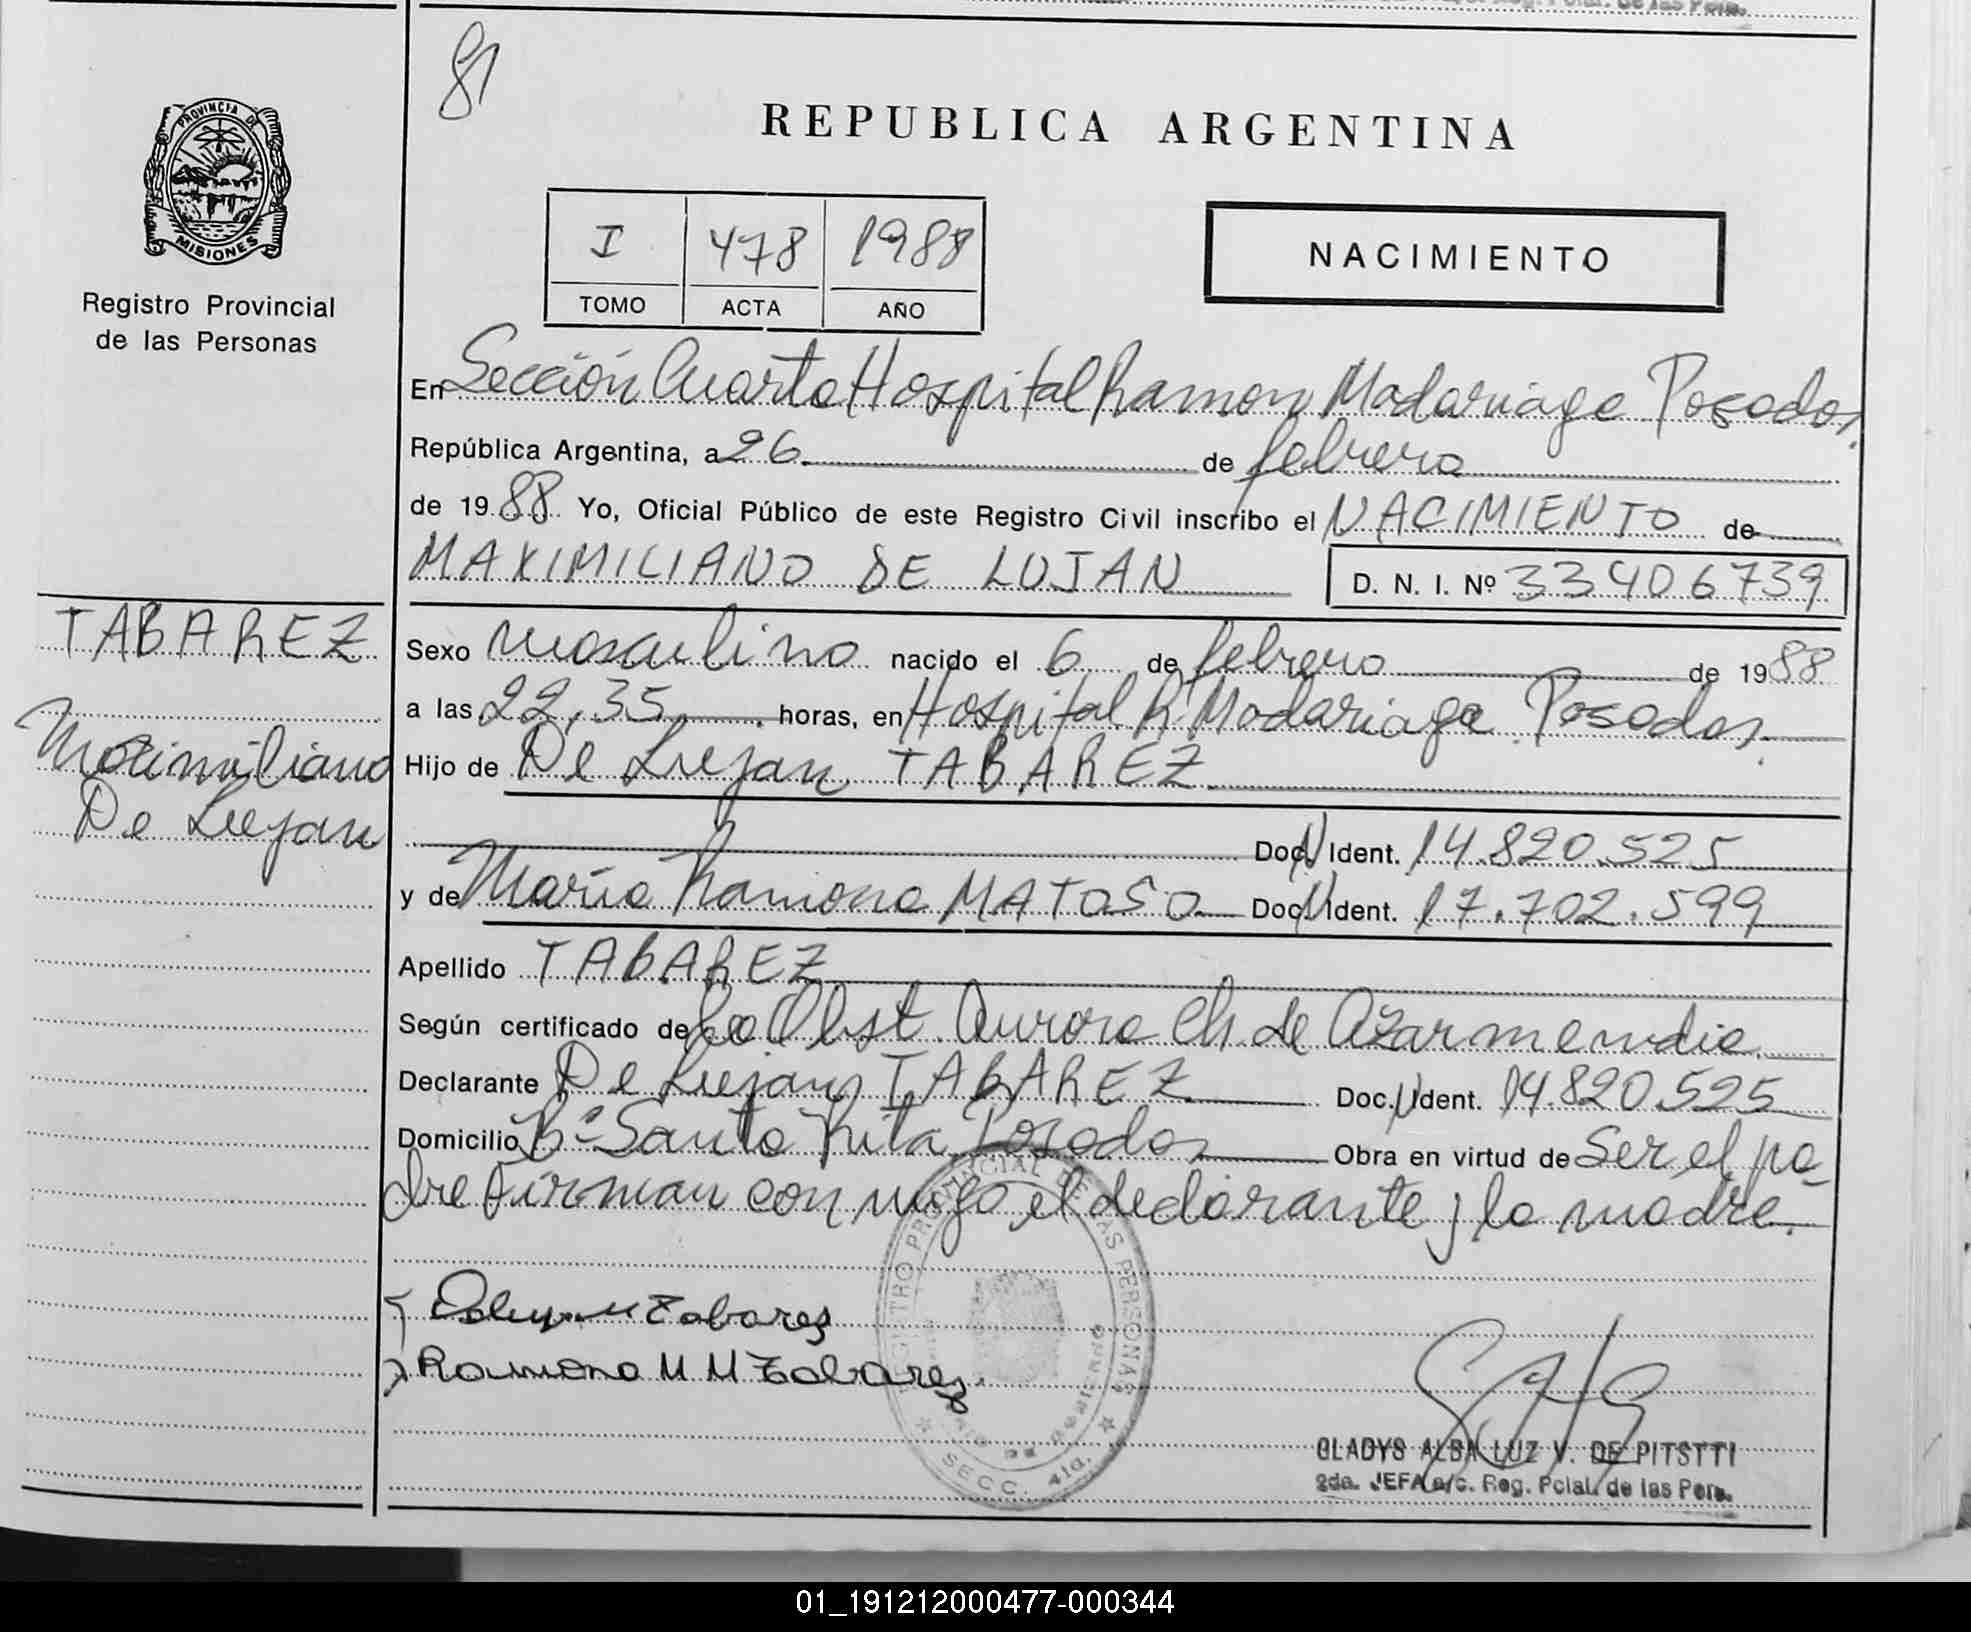 81
REPUBLICA ARGENTINA
PROVINCIA DE
MISIONES
Registro Provincial
de las Personas
I 478 1988
TOMO ACTA AÑO
NACIMIENTO
En Sección Cuarta Hospital Ramon Madariaga Posadas.
República Argentina, a 26 de febrero
de 1988 Yo, Oficial Público de este Registro Civil inscribo el NACIMIENTO de
MAXIMILIANO DE LUJAN D. N. I. Nº 33406739
TABAREZ
Maximiliano
De Lujan
Sexo masculino nacido el 6 de febrero de 1988
a las 22,35 horas, en Hospital R. Madariaga Posadas.
Hijo de De Lujan TABAREZ
Doc. N Ident. 14.820.525
y de María Ramona MATOSO Doc. N Ident. 17.702.599
Apellido TABAREZ
Según certificado de la Obst. Aurora Ch. de Azarmendia
Declarante De Lujan TABAREZ Doc. N Ident. 14.820.525
Domicilio Bº Santa Rita Posadas Obra en virtud de Ser el pa-
dre firman con migo el declarante y la madre.
Tabarez
Ramona M M Tabarez
REGISTRO PROVINCIAL DE LAS PERSONAS
SECC. 4ta.
GLADYS ALBA LUZ V. DE PITSTTI
2da. JEFA a/c. Reg. Pcial. de las Pers.
01_191212000477-000344